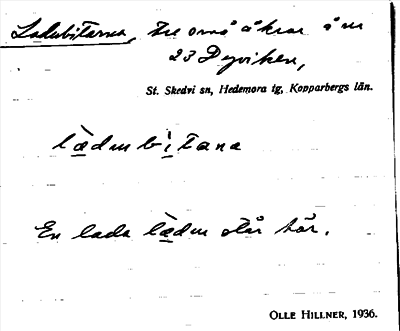 Ladubitarna, tre små åkrar å nr
23 Dyviken,
St. Skedvi sn, Hedemora tg, Kopparbergs län.
lädu bitana
En lada lädu står här.
OLLE HILLNER, 1936.